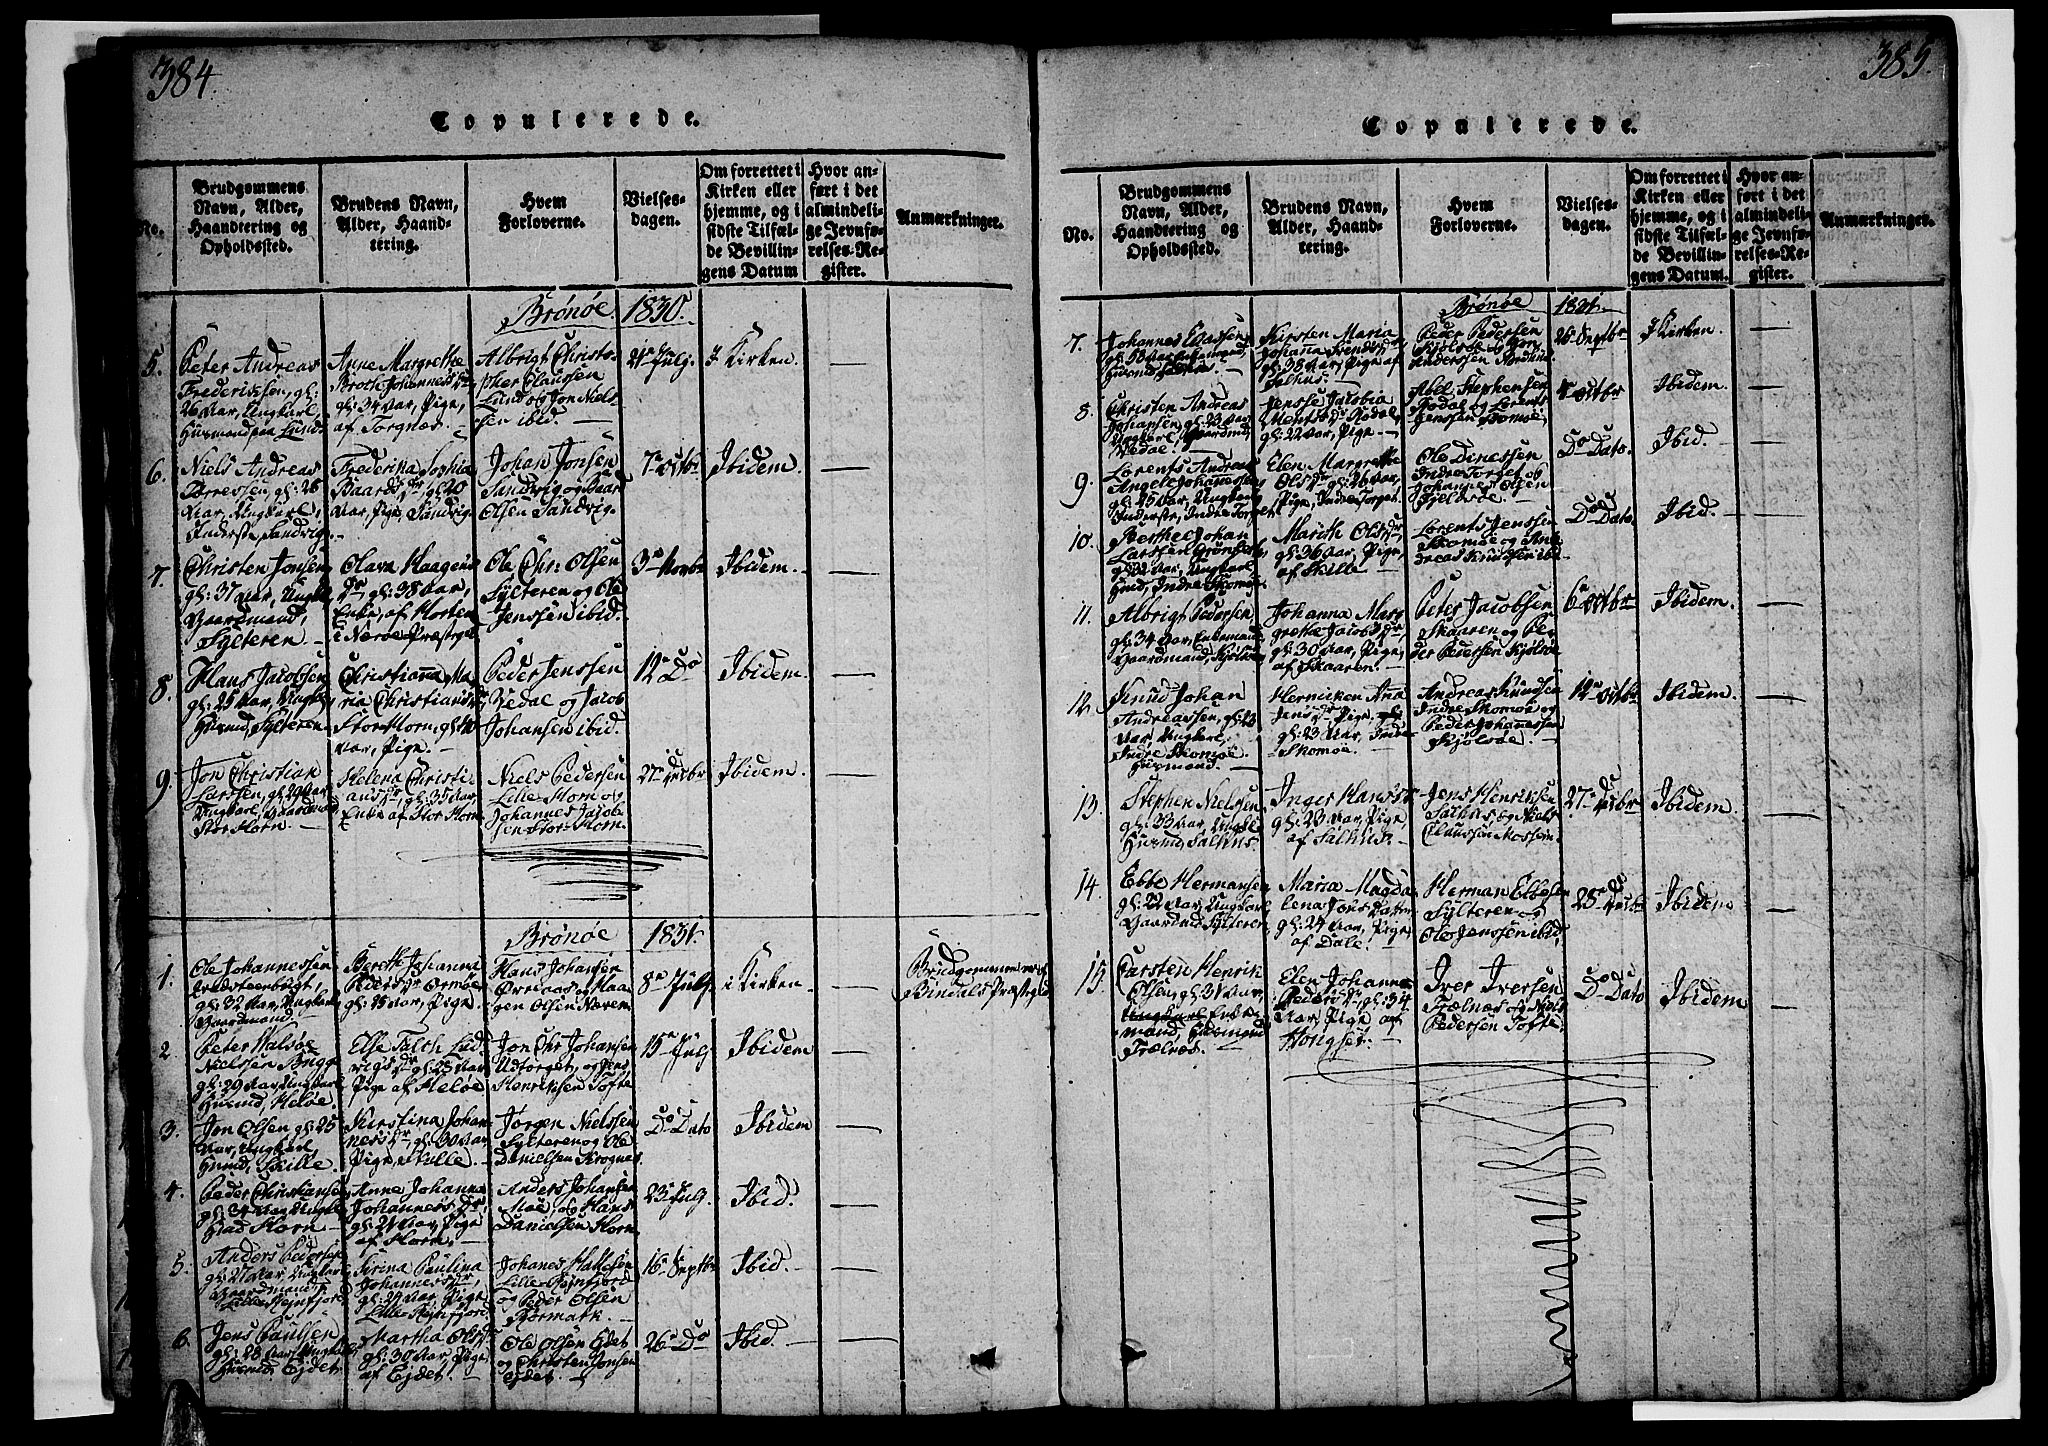 384.
Copulerede.
No.
Brudgommens Navn, Alder, Haandtering og Opholdssted.
Brudens Navn, Alder, Haandtering.
Hvem Forloverne.
Vielsesdagen.
Om forrettet i Kirken eller hjemme, og i sidste Tilfælde Bevillingens Datum
Hvor anført i det almindelige Jevnførelses-Register.
Anmærkninger.
Brønøe 1830.
5.
Peter Andreas
Frederikssen, gl:
26 Aar, Ungkarl,
Huusmand paa Lund.
Anne Margrethe
Broth Johannesdr
gl: 34 Aar, Pige,
af Torgnæs.
Albrigt Christo-
pher Claussen
Lund og Jon Niels-
sen ibid.
21de Julj.
I Kirken.
6.
Niels Andreas
Torressen, gl: 26
Aar, Ungkarl,
Inderste, Sandvig.
Frederika Sophia
Baardsdr, gl: 20
Aar, Pige, Sandvig.
Johan Jonsen
Sandvig og Baard
Olsen Sandvig.
7de Octbr
Ibidem.
7.
Christen Jonsen
gl: 37 Aar, Ungkl,
Gaardmand,
Sylteren.
Olava Haagens
dr gl: 38 Aar,
Enke, af Horten
i Nærøe Præstegl.
Ole Chr: Olsen
Sylteren og Ole
Jenssen ibid.
3de Novbr
Ibidem.
8.
Hans Jacobsen
gl: 25 Aar, Ungkl,
Husmd, Sylteren.
Christianna Ma-
ria Christiansdr
Stor Horn, gl: 20
Aar, Pige.
Peder Jenssen
Vedal og Jacob
Johansen ibid.
12te Do
Ibidem.
9.
Jon Christian
Larssen, gl: 29 Aar
Ungkarl, Gaardmand
Stor Horn.
Helena Christi-
ansdr, gl: 35 Aar,
Enke af Stor Horn.
Niels Pedersen
Lille-Horn og
Johannes Jacob-
sen Stor-Horn.
27de Decbr
Ibidem.
Brønøe 1831.
1.
Ole Johannessen
gl: 22 Aar, Ungkarl
Gaardmand.
Berethe Johanna
Pedersdr Ormøe
gl: 25 Aar, Pige.
Hans Johansen
Ørriaas og Haa-
gen Olsen Naven.
8de Julj
i Kirken
Brudgommen er af
Bindals Præstegld
2
Peter Waldøe
Nielssen Brygge
gl: 29 Aar, Ungkarl
Husmd, Heløe.
Else Falch Lud-
vigsdr gl: 25 Aar
Pige af Heløe
Jon Chr Johansen
Udtorget, og Jens
Henriksen Tofte
15de Julj
Ibidem
3.
Jon Olsen gl: 25
Aar, Ungkarl,
Husmd, Skille.
Kirstina Johan-
nesdr, gl: 30 Aar
Pige, Skille.
Jørgen Nielssen
Sylteren og Ole
Danielsen Krognes.
Do Dato
Ibidem
4.
Peder Christiansen
gl: 34 Aar, Ungkl
Horn
Anne Johanna
Johannesdr
gl: 24 Aar, Pige
af Horn.
Anders Johansen
Moe, og Hans
Danielsen Horn.
23de Julj.
Ibid.
5.
Anders Pedersen
gl: 27 Aar, Ungkarl
Gaardmand
Lille-Steinfjord
Sirina Paulina
Johannesdr,
gl: 24 Aar, Pige
Lille-Steinfjord
Johanes
Lille-Steinfjord
og Peder Olsen
16de Septbr
Ibid.
6.
Jens Paulsen
gl: 28 Aar, Ungkarl
Husmd Ejdet.
Martha Olsdr
gl: 30 Aar, Pige
af Ejdet.
Ole Olsen Ejdet
og Christen Jonsen
Ejdet.
26de Do
Ibid.
385.
Copulerede.
No.
Brudgommens Navn, Alder, Haandtering og Opholdssted.
Brudens Navn, Alder, Haandtering.
Hvem Forloverne.
Vielsesdagen.
Om forrettet i Kirken eller hjemme, og i sidste Tilfælde Bevillingens Datum.
Hvor anført i det almindelige Jevnførelses-Register.
Anmærkninger.
Brønøe 1831.
7.
Johannes Claussen
Kirsten Maria
gl: 38 Aar, Pige af
Salhus.
Peder Pedersen
Kjølsøe og
Anderssen
26de Septbr
I Kirken.
8.
Christen Andreas
Johansen, gl: 23 Aar,
Ungkarl, Gaardmd
Vedal.
Rodal
gl: 22 Aar, Pige
Abel Stephensen
Rodal og Lorents
Jenssen Skomøe.
1ste Octbr
Ibidem.
9.
Lorents Andreas
Angel Johanessen
gl: 25 Aar, Ungkarl
Inderste, Indre Torget
Elen Margrethe
Olsdr gl: 26 Aar,
Pige, Indre Torget.
Ole Dinessen
Indre Torget og
Johannes Olsen
Do Dato.
Ibid.
10.
Berthel Johan
Larssen
gl: 32 Aar, Ungkarl
Husmd, Indre Skomøe
Marith Olsdr
gl: 36 Aar, Pige
af Skille
Lorents Jenssen
Skomøe og And-
reas Knudsen ibid.
Do Dato.
Ibid.
11.
Albrigt Pedersen
gl: 34 Aar, Enkemand,
Gaardmand, Kjølsøe
Johanna Mar-
grethe Jacobsdr,
gl: 30 Aar, Pige,
af Skaaren.
Peter Jacobsen
Skaaren og Pe-
der Pedersen Kjølsøe
6te Octbr
Ibidem
12.
Knud Johan
Andreassen, gl: 23
Aar, Ungkarl,
Indre Skomøe
Husmand.
Hernicken Anna
Jensdr, Pige
gl: 23 Aar, Indre
Skomøe.
Andreas Knudsen
Indre Skomøe og
Peder Johannessen
Kjølsøe.
12te Octbr
Ibidem.
13.
Stephen Nielssen,
gl: 33 Aar, Ungkl
Husmd Salhus.
Inger Hansdr
gl: 23 Aar, Pige,
af Salhus.
Jens Henriksen
Salhus, og Niels
Claussen Mossem.
27de Decbr
Ibidem.
14.
Ebbe Hermansen
gl: 22 Aar, Ungkarl
Gaardmd Sylteren
Maria Magda-
lena Jons Datter
gl: 24 Aar, Pige,
af Dale.
Herman Ebbesen
Sylteren og
Ole Jenssen ibid.
28de Decbr
Ibidem
15.
Carsten Henrik
Olsen, gl: 31 Aar
Ungkarl Enke-
mand,
Trælnæs.
Elen Johanna
Pedersdr, gl: 34
Aar, Pige af
Hongset.
Iver Iversen
Trælnæs og Niels
Pedersen Tofte
Do Dato
Ibidem